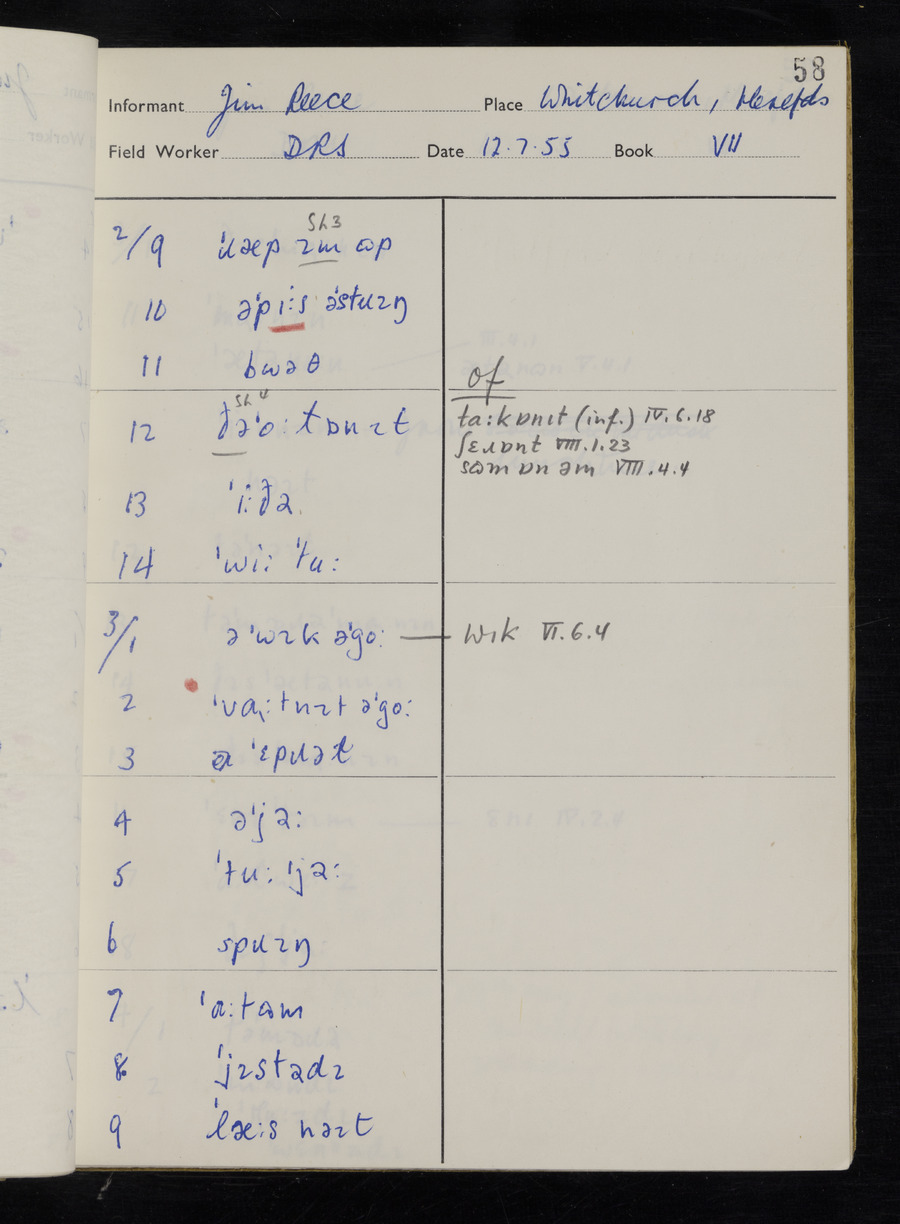 58
Informant Jim Reece Place Whitchurch, Herefds
Field Worker DRS Date 12.7.55 Book VII
Sh3
2/9 ˈɹæp ɪm ɷp
10 əˈpɪːs əˈstɹɪŋ
11 bɷəθ
of
Sh4
12 ðəˈoːt ɒn ɪt
taːk ɒnɪt (inf.) IV.6.18
ʃɛɹɒnt VIII.1.23
sɷm ɒn əm VIII.4.4
13 ˈiːðə
14 ˈwiː ˈtuː
3/1 əˈwɪk əˈgoː — wɪk VI.6.4
2 əˈgoː
3
4 əˈjəː
5 ˈtuː ˈjəː
6 spɹɪŋ
7 ˈɑːtəm
8 ˈjɪstədɪ
9 ˈlæːs nəɪt